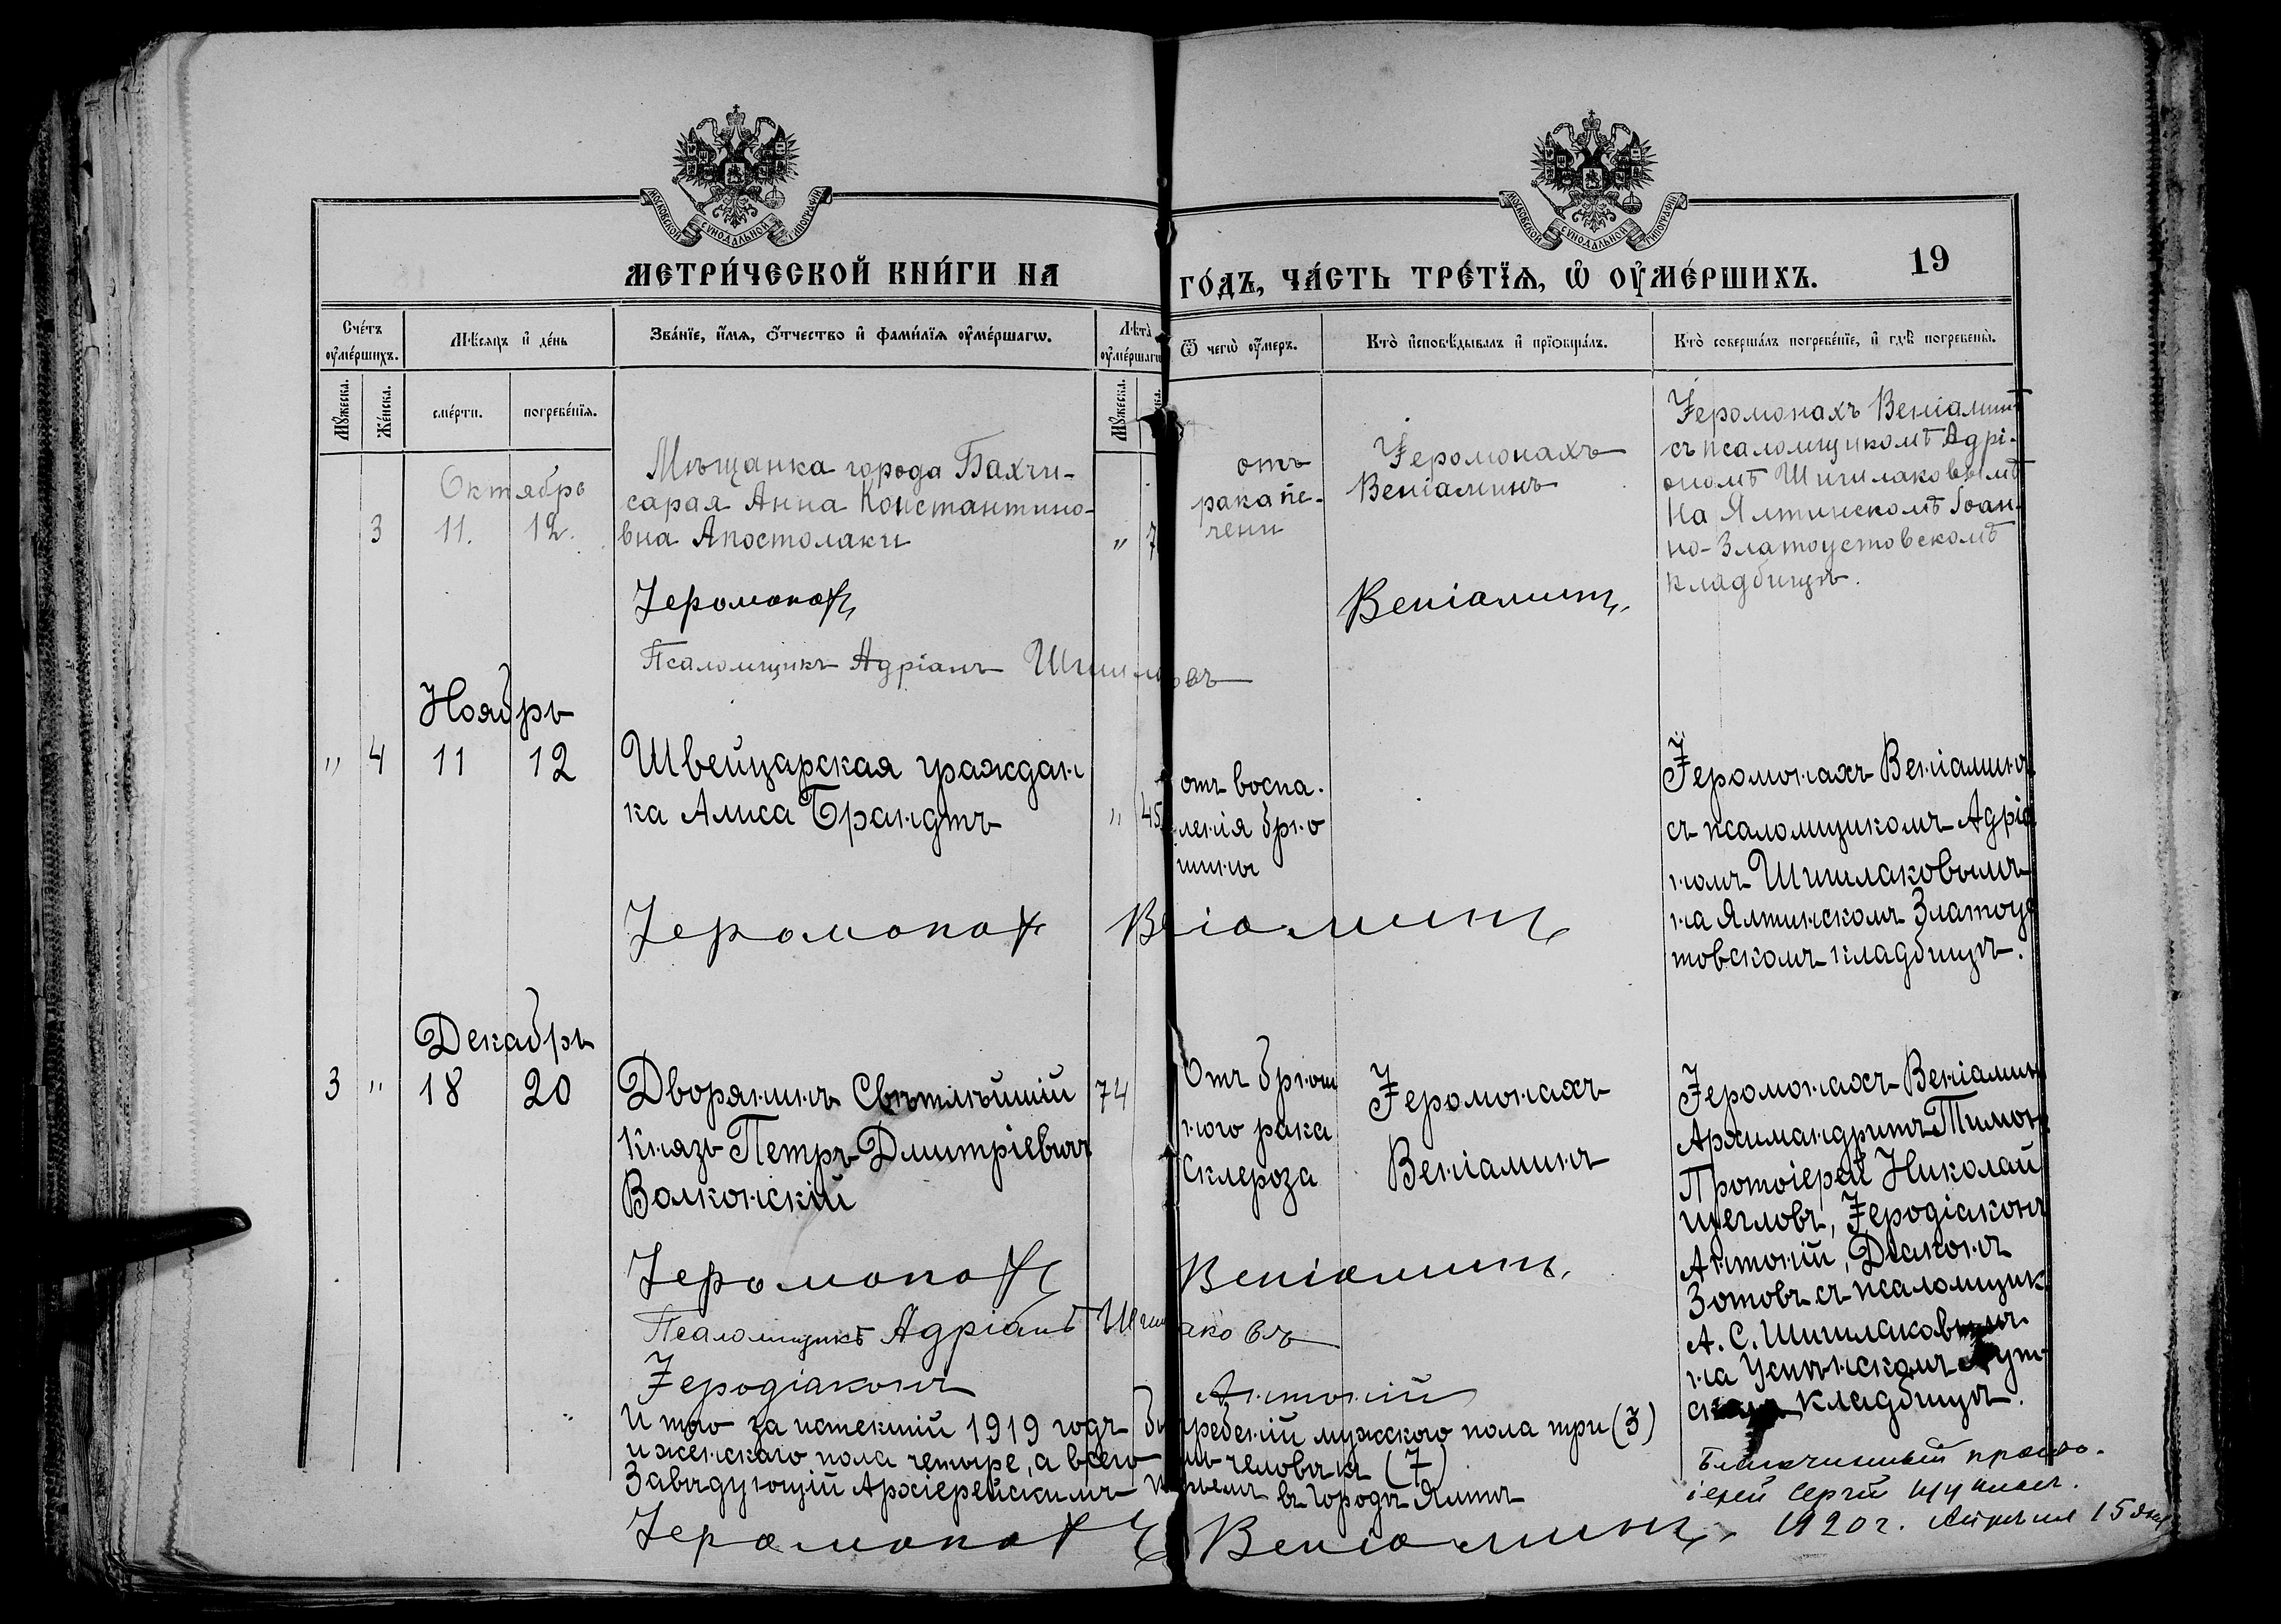 МОСКОВСКОЙ СѴНОДАЛЬНОЙ ТИПОГРАФІИ
МОСКОВСКОЙ СѴНОДАЛЬНОЙ ТИПОГРАФІИ
МЕТРИ́ЧЕСКОЙ КНИ́ГИ НА ГО́ДЪ, ЧА́СТЬ ТРЕ́ТЇѦ, Ѡ҆ ОУ҆МЕ́РШИХЪ.
19
Сче́тъ оу҆ме́ршихъ.
Мѣ́сяцъ и҆ де́нь
Зва́нїе, и҆́мѧ, ѻ҆́тчество и҆ фами́лїѧ оу҆ме́ршагѡ.
Лѣта̀ оу҆ме́ршагѡ
Ѿ чегѡ̀ оу҆́меръ.
Кто̀ и҆сповѣ́дывалъ и҆ прїѡбща́лъ.
Кто̀ соверша́лъ погребе́нїе, и҆ гдѣ̀ погребены̀.
Мꙋ́жеска.
Же́нска.
сме́рти.
погребе́нїѧ.
Мꙋ́жеска.
Октябрь
3 11. 12.
Мѣщанка города Бахчи-
сарая Анна Константино-
вна Апостолаки
" 7
отъ
рака пе-
чени
Іеромонахъ
Веніаминъ
Іеромонахъ Веніаминъ
съ псаломщикомъ Адрі-
аномъ Шишлаковымъ
на Ялтинскомъ Іоан-
но-Златоустовскомъ
кладбищѣ.
Іеромонахъ Веніаминъ
Псаломщикъ Адріанъ Шишлаковъ
Ноябрь
" 4 11 12
Швейцарская граждан
ка Алиса Брандтъ
" 45
отъ воспа-
ленія брю
шины
Іеромонахъ Веніаминъ
съ псаломщикомъ Адріа
номъ Шишлаковымъ
на Ялтинскомъ Златоус
товскомъ кладбищѣ.
Іеромонахъ Веніаминъ
Декабрь
3 " 18 20
Дворянинъ Свѣтлѣйшій
Князь Петръ Дмитріевичъ
Волконскій
74
Отъ брюш
ного рака
Склероза
Іеромонахъ
Веніаминъ
Іеромонахъ Веніаминъ
Архимандритъ Тимонъ
Протоіерей Николай
Щегловъ, Іеродіаконъ
Антоній, Діаконъ
Зотовъ съ псаломщик
А. С. Шишлаковымъ
на Успѣнскомъ Аут-
скомъ кладбищѣ.
Іеромонахъ Веніаминъ
Псаломщикъ Адріанъ Шишлаковъ
Іеродіаконъ Антоній
И того за истекшій 1919 годъ погребеній мужского пола три (3)
и женскаго пола четыре, а всего человѣкъ (7)
Завѣдующій Архіерейскимъ въ городѣ Ялтѣ
Іеромонахъ Веніаминъ.
Благочинный прото-
іерей Сергій Щукинъ.
1920 г. Апрѣля 15 дня